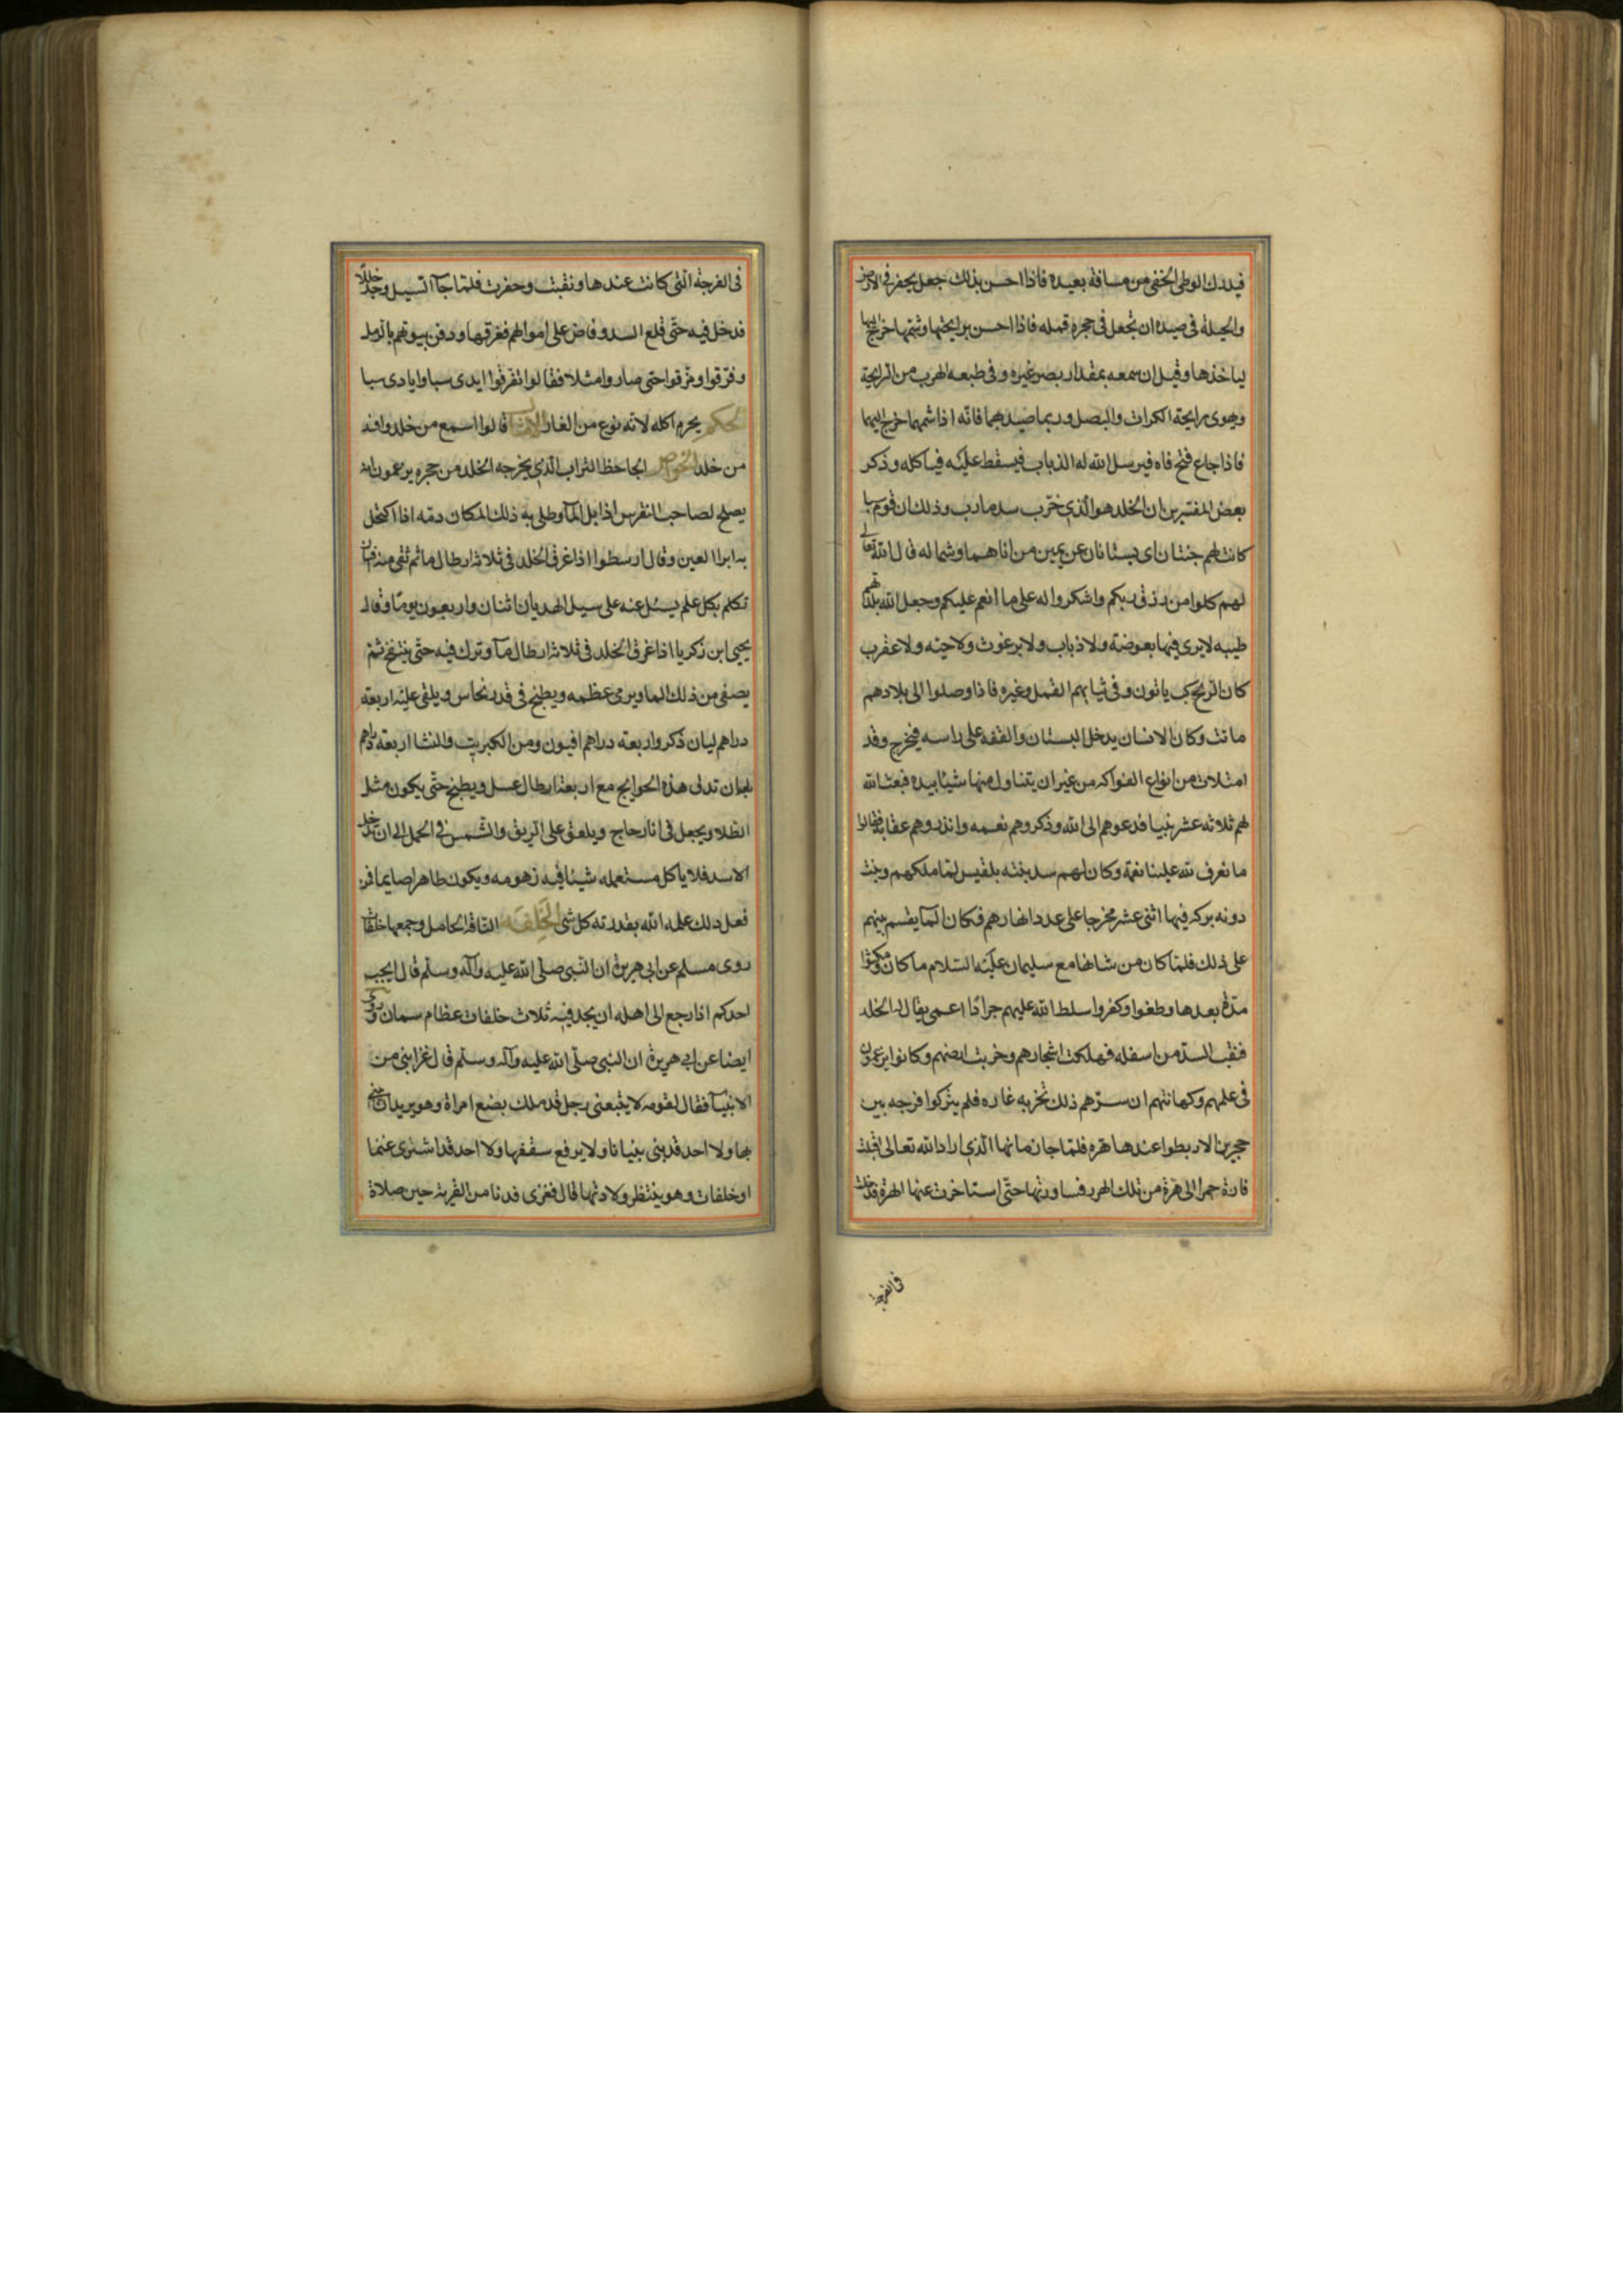 فيدرك الوطى الخفى من مسافة بعيدة فاذا احسن بذلك جعل يحفر فى الارض
والحيلة فى صيده ان تجعل فى حجره قمله فاذا احسن برايحتها وشمها خرج اليها
لياخذها وقيل ان سمعه بمقدار بصر غيره وفى طبعه الهرب من الرايحة
ويهوى رايحة الكراث والبصل وربما صيد بهما فانه اذا شمهما خرج اليهما
فاذا جاع فتح فاه فيرسل الله له الذباب فيسقط عليه فياكله وذكر
بعض المفسرين ان الخلد هو الذى خرب سد مارب وذلك ان قوم سبا
كانت لهم جنتان اى بستانان عن يمين من اتاهما وشماله قال الله تعالى
لهم كلوا من رزق ربكم واشكروا له على ما انعم عليكم وجعل الله بلدتهم
طيبه لا يرى فيها بعوضة ولا ذباب ولا برغوث ولا حيه ولا عقرب
كان الريح كب ياتون وفى ثيابهم القمل وغيره فاذا وصلوا الى بلادهم
ماتت وكان الانسان يدخل البستان والقفه على راسه فيخرج وقد
امتلات من انواع الفواكه من غير ان يتناول منها شيئا بيده فبعث الله
لهم ثلاثه عشر نبيا فدعوهم الى الله وذكروهم نعمه وانذروهم عقابه فقالوا
ما نعرف لله علينا نعمة وكان لهم سد بنته بلقيس لما ملكهم وبنت
دونه بركه فيها اثنى عشر مخرجا على عدد انهارهم فكان المآ يقسم بينهم
على ذلك فلما كان من شانها مع سليمان عليه السلام ما كان ومكثوا
مدة بعدها وطغوا وكفروا سلط الله عليهم جرادا اعمى يقال له الخلد
فنقب السد من اسفله فهلكت اشجارهم وخربت ارضهم وكانوا يزعمون
فى علمهم وكهانتهم ان سدهم ذلك تخربه غاره فلم يتركوا فرجه بين
حجرين الا ربطوا عندها هره فلما جا زمانها الذى اراد الله تعالى اقبلت
فارة حمرا الى هرة من تلك الهرر فساورتها حتى استاخرت عنها الهرة فدخلت
فى الفرجة
فى الفرجة التى كانت عندها ونقبت وحفرت فلما جآ السيل وجد خللا
فدخل فيه حتى قلع السد وفاض على اموالهم فغرقها ودفن بيوتهم بالرمل
وفرقوا ومزقوا حتى صاروا مثلا فقالوا تفرقوا ايدى سبا وايادى سبا
الحكم يحرم اكله لانه نوع من الفار الامثال قالوا اسمع من خلد وافسد
من خلد الخواص الجاحظ التراب الذى يخرجه الخلد من حجره يزعمون انه
يصلح لصاحب النقرس اذا بل بالمآ وطلى به ذلك المكان دمه اذا اكتحل
به ابرا العين وقال ارسطوا اذا غرق الخلد فى ثلاثة ارطال ما ثم سقى منه انسان
تكلم بكل علم يسئل عنه على سبيل الهديان اثنان واربعون يوما وقال
يحيى ابن زكريا اذا غرق الخلد فى ثلاثة ارطال مآ وترك فيه حتى ينتفخ ثم
يصفى من ذلك الما ويرمى عظمه ويطبخ فى قدر نحاس ويلقى عليه اربعة
دراهم لبان ذكر واربعه دراهم افيون ومن الكبريت والنشا اربعة دراهم
تدق هذه الحوايج مع اربعة ارطال عسل ويطبخ حتى يكون مثل
الطلا ويجعل فى انا زجاج ويلعق على الريق والشمس فى الحمل الى ان تدخل
الاسد فلا ياكل مستعمله شيئا فيه زهومه ويكون طاهرا صايما فمن
فعل ذلك علمه الله بقدرته كل شى الخلفه الناقة الحامل وجمعها خلفات
روى مسلم عن ابى هريرة ان النبى صلى الله عليه وآله وسلم قال ايحب
احدكم اذا رجع الى اهله ان يجد فيه ثلاث خلفات عظام سمان وروى
ايضا عن ابى هريرة ان النبى صلى الله عليه وآله وسلم قال غزا نبى من
الانبيآ فقال لقومه لا يتبعنى رجل قد ملك بضع امراة وهو يريد ان يبنى
بها ولا احد قد بنى بنيانا ولا يرفع سقفها ولا احد قد اشترى غنما
او خلفات وهو ينتظر ولادتها قال فغزى فدنا من القرية حين صلاة